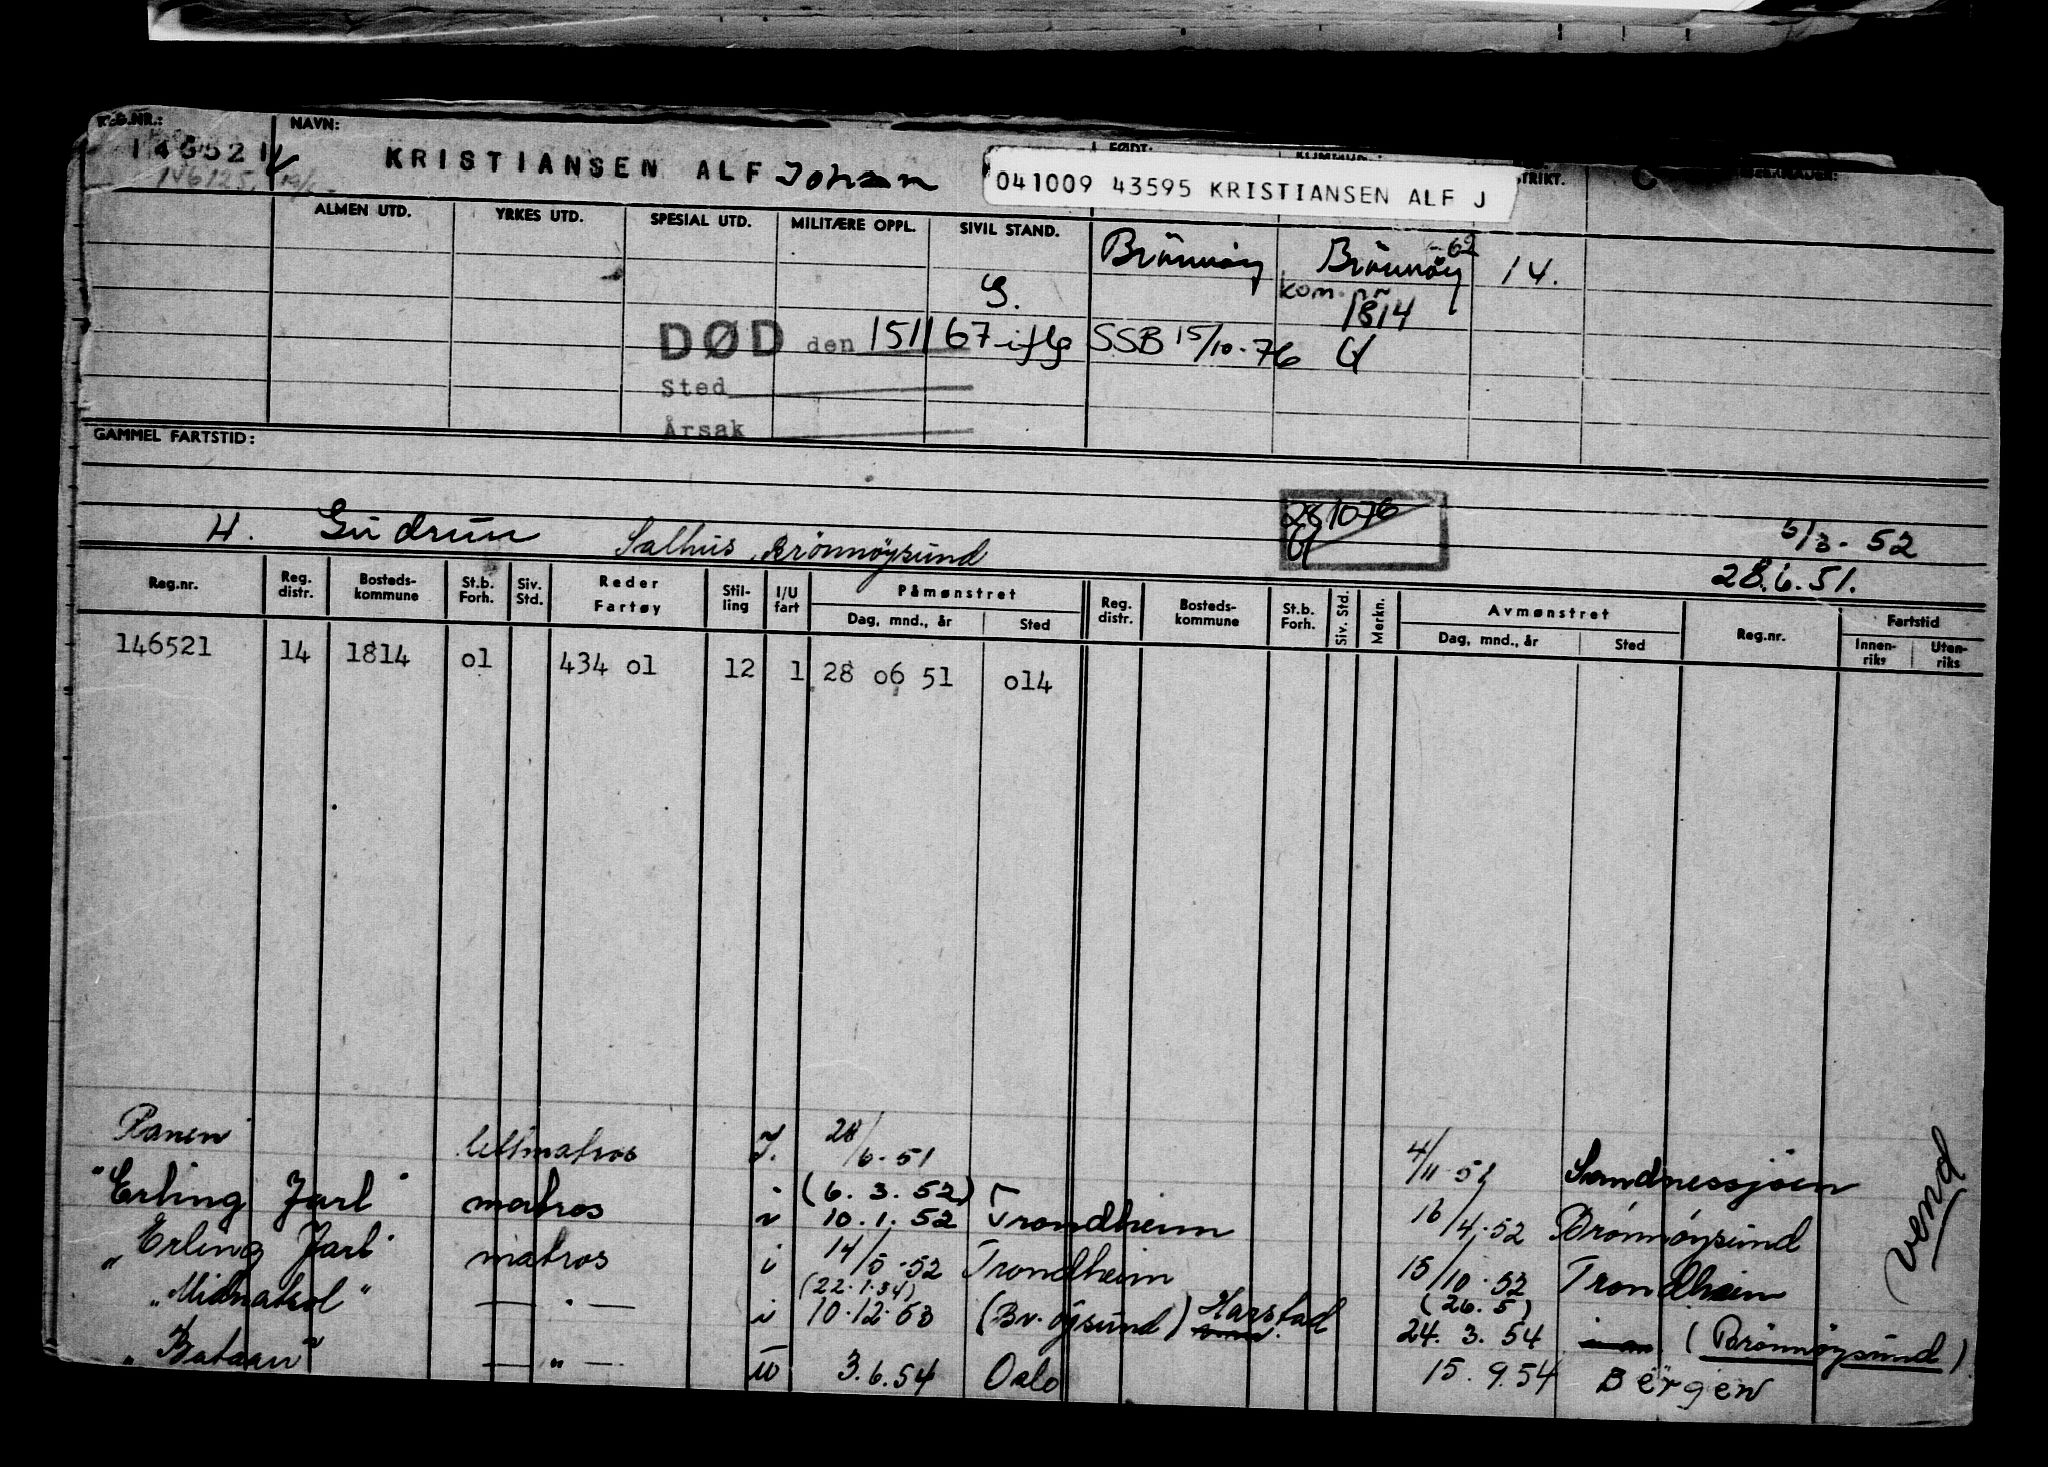 REG.NR.: NAVN: FØDT:
146521 KRISTIANSEN ALF Johan 041009 43595 KRISTIANSEN ALF J
146125
ALMEN UTD. YRKES UTD. SPESIAL UTD. MILITÆRE OPPL. SIVIL STAND.
Brönnöy Brönnöy -62 14.
G. kom. nr 1814
DØD den 151167 iflg SSB 15/10-76
Sted
Årsak
GAMMEL FARTSTID:
281076
H. Gudrun Salhus, Brönnöysund 5/3-52
28.6.51.
Reg.nr. Reg. distr. Bosteds-kommune St.b. Forh. Siv. Std. Reder Fartøy Stil-ling I/U fart Påmønstret Dag, mnd., år Sted Reg. distr. Bosteds-kommune St.b. Forh. Siv. Std. Merkn. Avmønstret Dag, mnd., år Sted Reg.nr. Fartstid Innen-riks Uten-riks
146521 14 1814 01 434 01 12 1 28 06 51 014
Ranen lettmatros I. 28/6-51 4/11 51 Sandnessjöen
"Erling Jarl" matros i (6.3.52) 10.1.52 Trondheim 16/4.52 Brönnöysund
"Erling Jarl" matros i 14/5.52 Trondheim 15/10.52 Trondheim
"Midnatsol" — " — i (22.1.54) 10.12.53 (Br.öysund) Harstad (26.5) 24.3.54 (Brönnöysund)
"Bataan" — " — u 3.6.54 Oslo 15.9.54 Bergen
vend